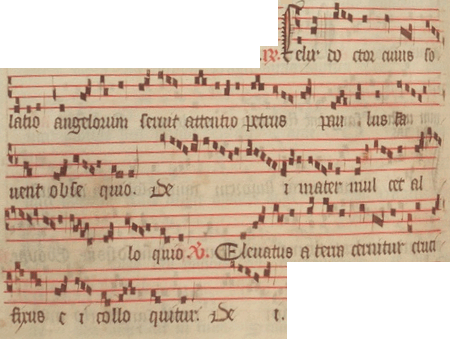 R. Felix doctor cuius so
latio angelorum seruit attentio petrus paulus fa
uent obsequio. Dei mater mulcet al
loquio. V. Eleuatus a terra cernitur cruci
fixus ei colloquitur. Dei.